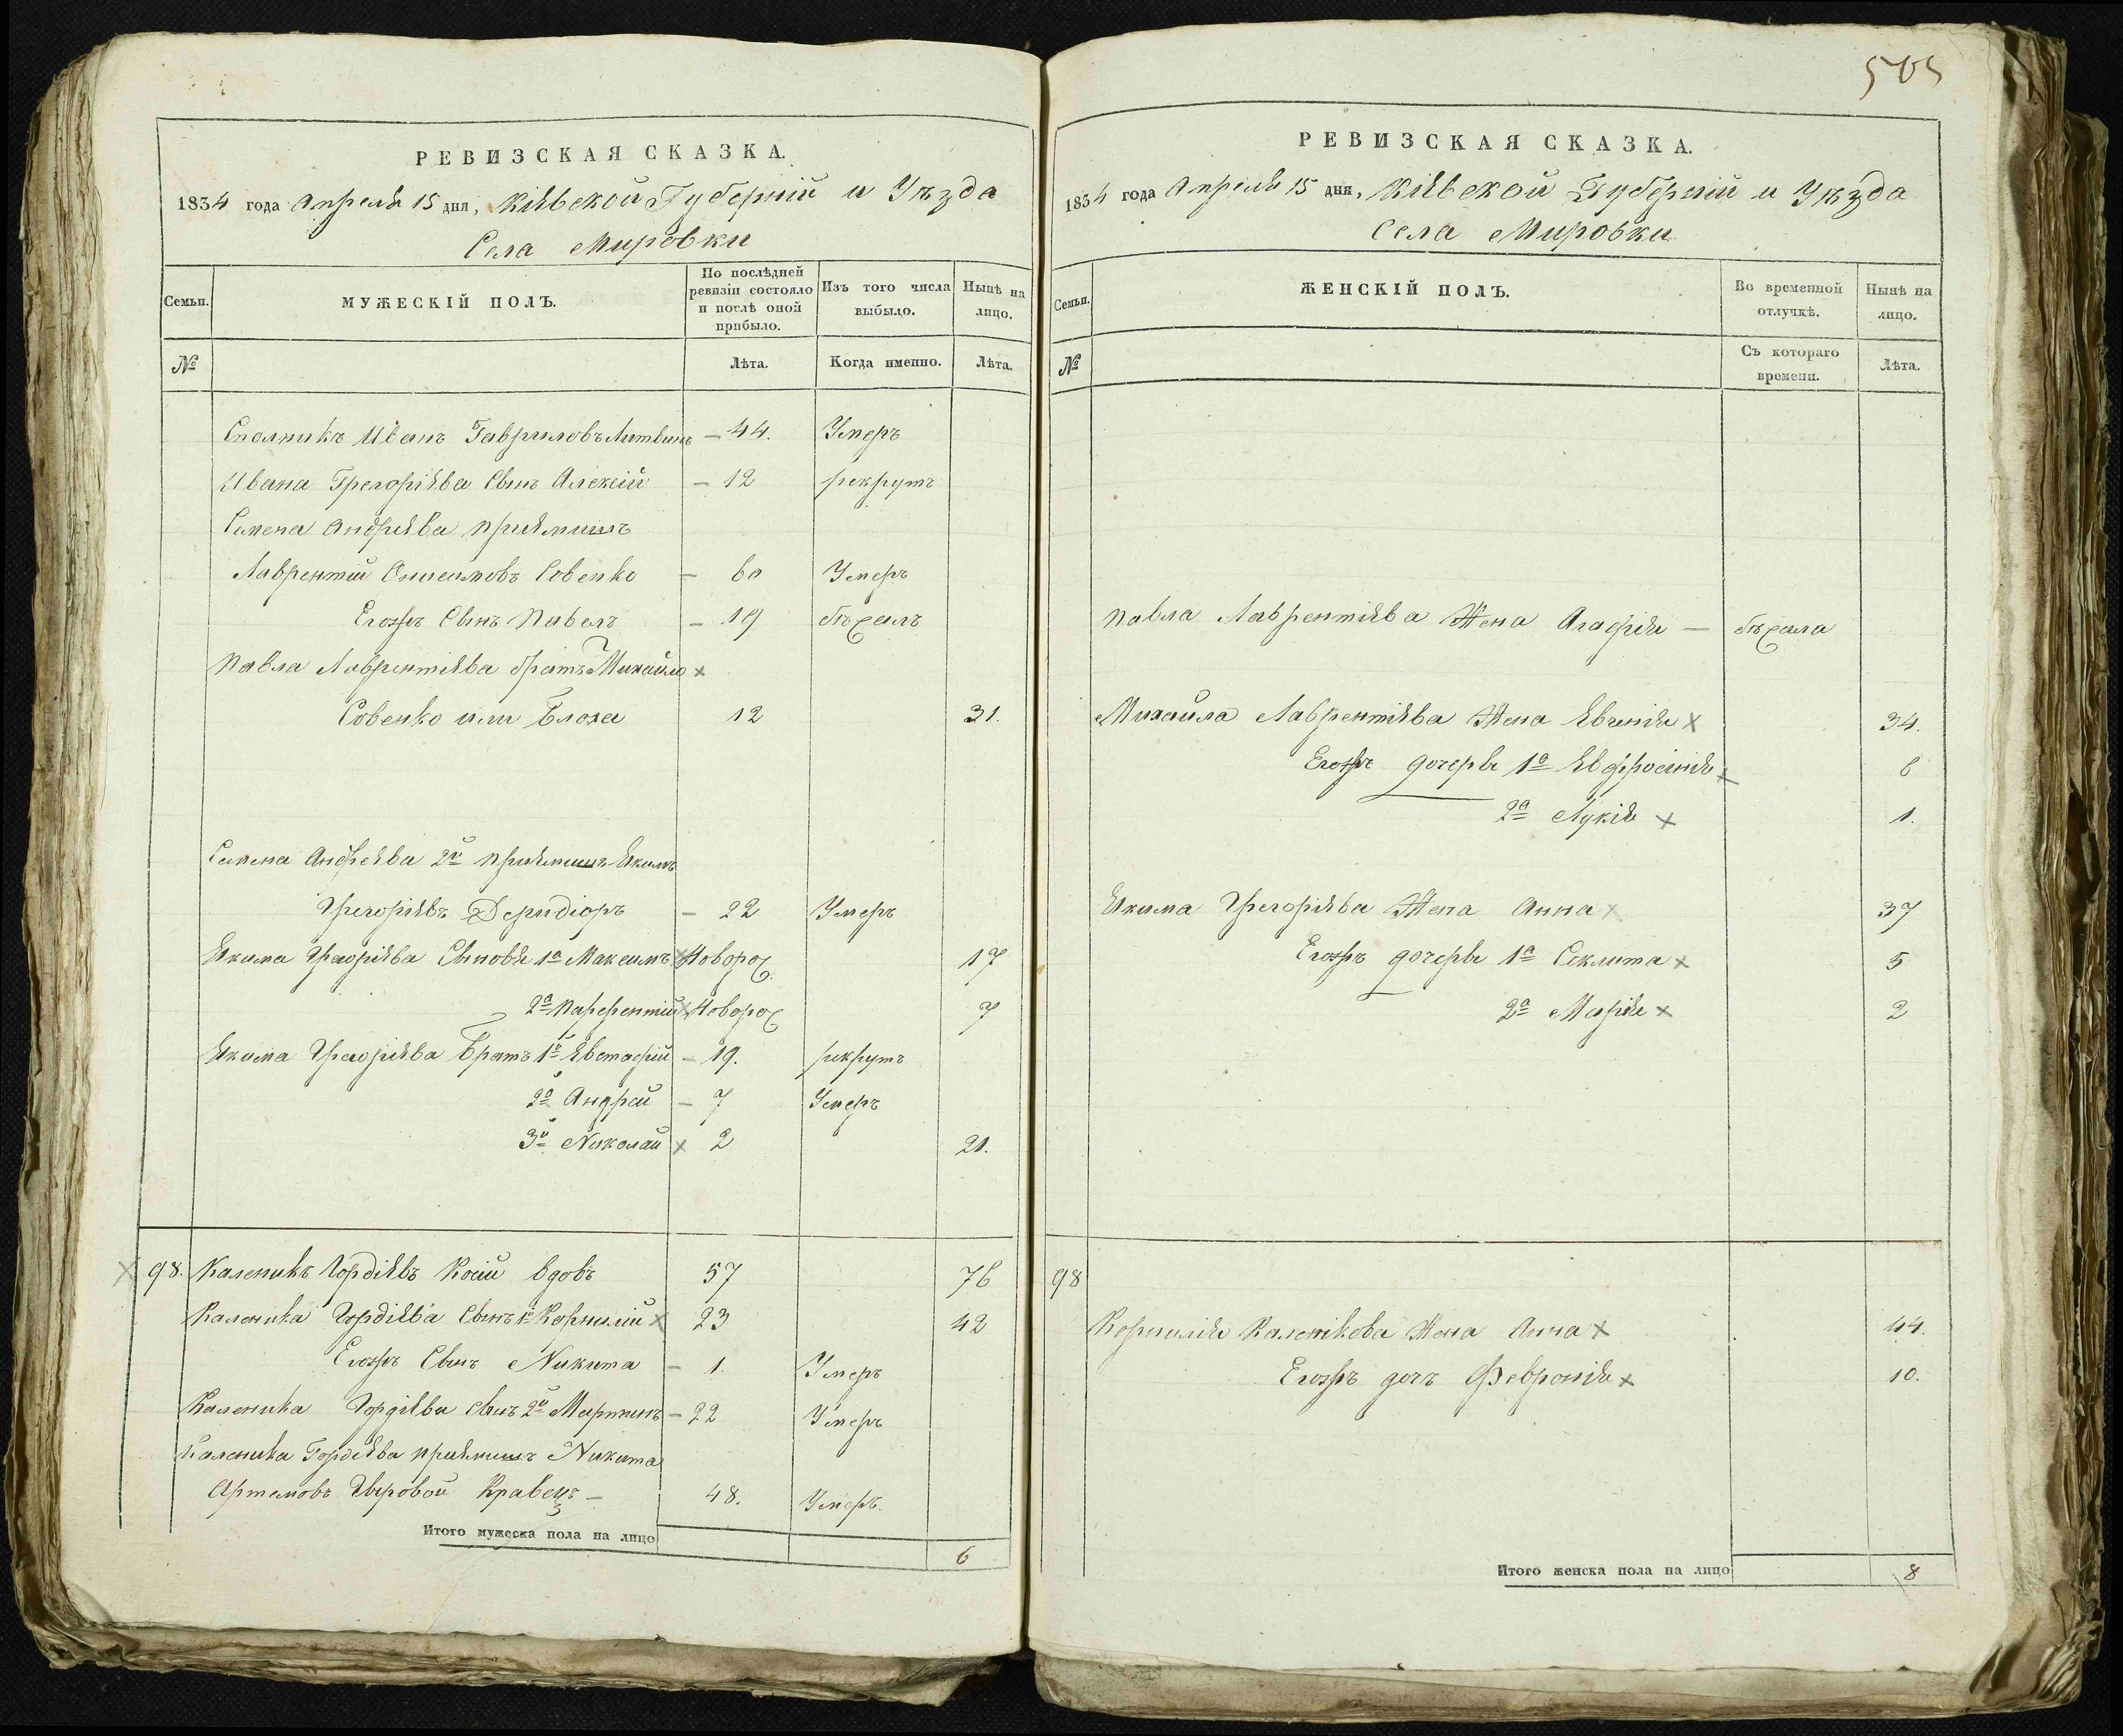 505
РЕВИЗСКАЯ СКАЗКА.
1834 года Апреля 15 дня, Кіевской Губерніи и Уѣзда
Села Мировки
Семьи.
МУЖЕСКІЙ ПОЛЪ.
По послѣдней ревизіи состояло и послѣ оной прибыло.
Изъ того числа выбыло.
Нынѣ на лицо.
№
Лѣта.
Когда именно.
Лѣта.
Иванъ Гавриловъ Литвинъ — 44. Умеръ
Ивана Грегоріева Сынъ Алексій — 12 рекрутъ
Семена Андріева пріемышъ
Лаврентій Онисимовъ Совенко — 60 Умеръ
Егожъ Сынъ Павелъ — 19 бѣжалъ
Павла Лаврентіева братъ Михайло х
Совенко или Блоха 12 31.
Семена Андреева 2й пріемышъ Якимъ
Грегоріевъ Деридіоръ — 22 Умеръ
Якима Грегоріева Сыновья 1й Максимъ х Новорож 17
2й Парфентій х Новорож 7
Якима Грегоріева Братъ 1й Евстафій — 19. рекрутъ
2й Андрей — 7 Умеръ
3й Николай х 2 21.
х 98. Каленикъ Гордіевъ Косій вдовъ 57 76
Каленика Гордіева Сынъ 1й Корнилій х 23 42
Егожъ Сынъ Никита — 1. Умеръ
Каленика Гордіева сынъ 2й Мартинъ — 22 Умеръ
Каленика Гордіева пріемышъ Никита
Артемовъ Кравецъ — 48. Умеръ.
Итого мужеска пола на лицо 6
РЕВИЗСКАЯ СКАЗКА.
1834 года Апреля 15 дня, Кіевской Губерніи и Уѣзда
Села Мировки
Семьи.
ЖЕНСКІЙ ПОЛЪ.
Во временной отлучкѣ.
Нынѣ на лицо.
№
Съ котораго времени.
Лѣта.
Павла Лаврентіева Жена Агафія — бѣжала
Михайла Лаврентіева Жена Евгенія х 34.
Егожъ дочеры 1а Евфросинія х 6
2а Лукія х 1.
Якима Грегоріева Жена Анна х 37
Егожъ дочеры 1а Секлита х 5
2а Марія х 2
98
Корнилія Каленикова Жена Анна х 44.
Егожъ дочъ Февронія х 10.
Итого женска пола на лицо 8